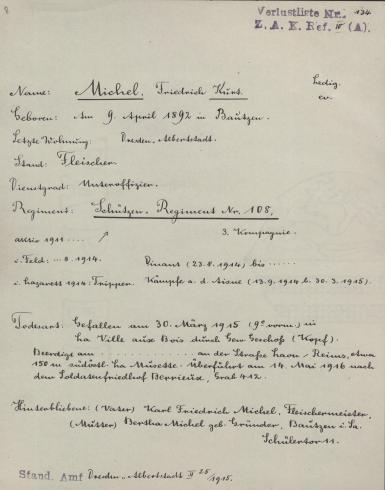 8
Verlustliste Nr. 134
Z. A. K. Ref. IV (A).
Name: Michel, Friedrich Kurt. ledig.
ev.
Geboren: Am 9. April 1892 in Bautzen.
Letzte Wohnung: Dresden, Albertstadt.
Stand: Fleischer
Dienstgrad: Unteroffizier.
Regiment: Schützen-Regiment Nr. 108,
3. Kompagnie.
aktiv 1911 ....
i. Feld: ... 8. 1914. Dinant (23.8.1914) bis ......
i. Lazarett 1914: Tripper. Kämpfe a. d. Aisne (13.9.1914 b. 30.3.1915).
Todesart: Gefallen am 30. März 1915 (9° vorm.) in
La Ville aux Bois durch Gew. Geschoß (Kopf).
Beerdigt am .................. an der Straße Laon-Reims, etwa
150 m südöstl. La Musette. Überführt am 14. Mai 1916 nach
dem Soldatenfriedhof Berrieux, Grab 412.
Hinterbliebene: (Vater) Karl Friedrich Michel, Fleischermeister,
(Mutter) Bertha Michel geb. Gründer, Bautzen i. Sa.
Schülertor 11.
Stand. Amt Dresden-Albertstadt II 25/1915.